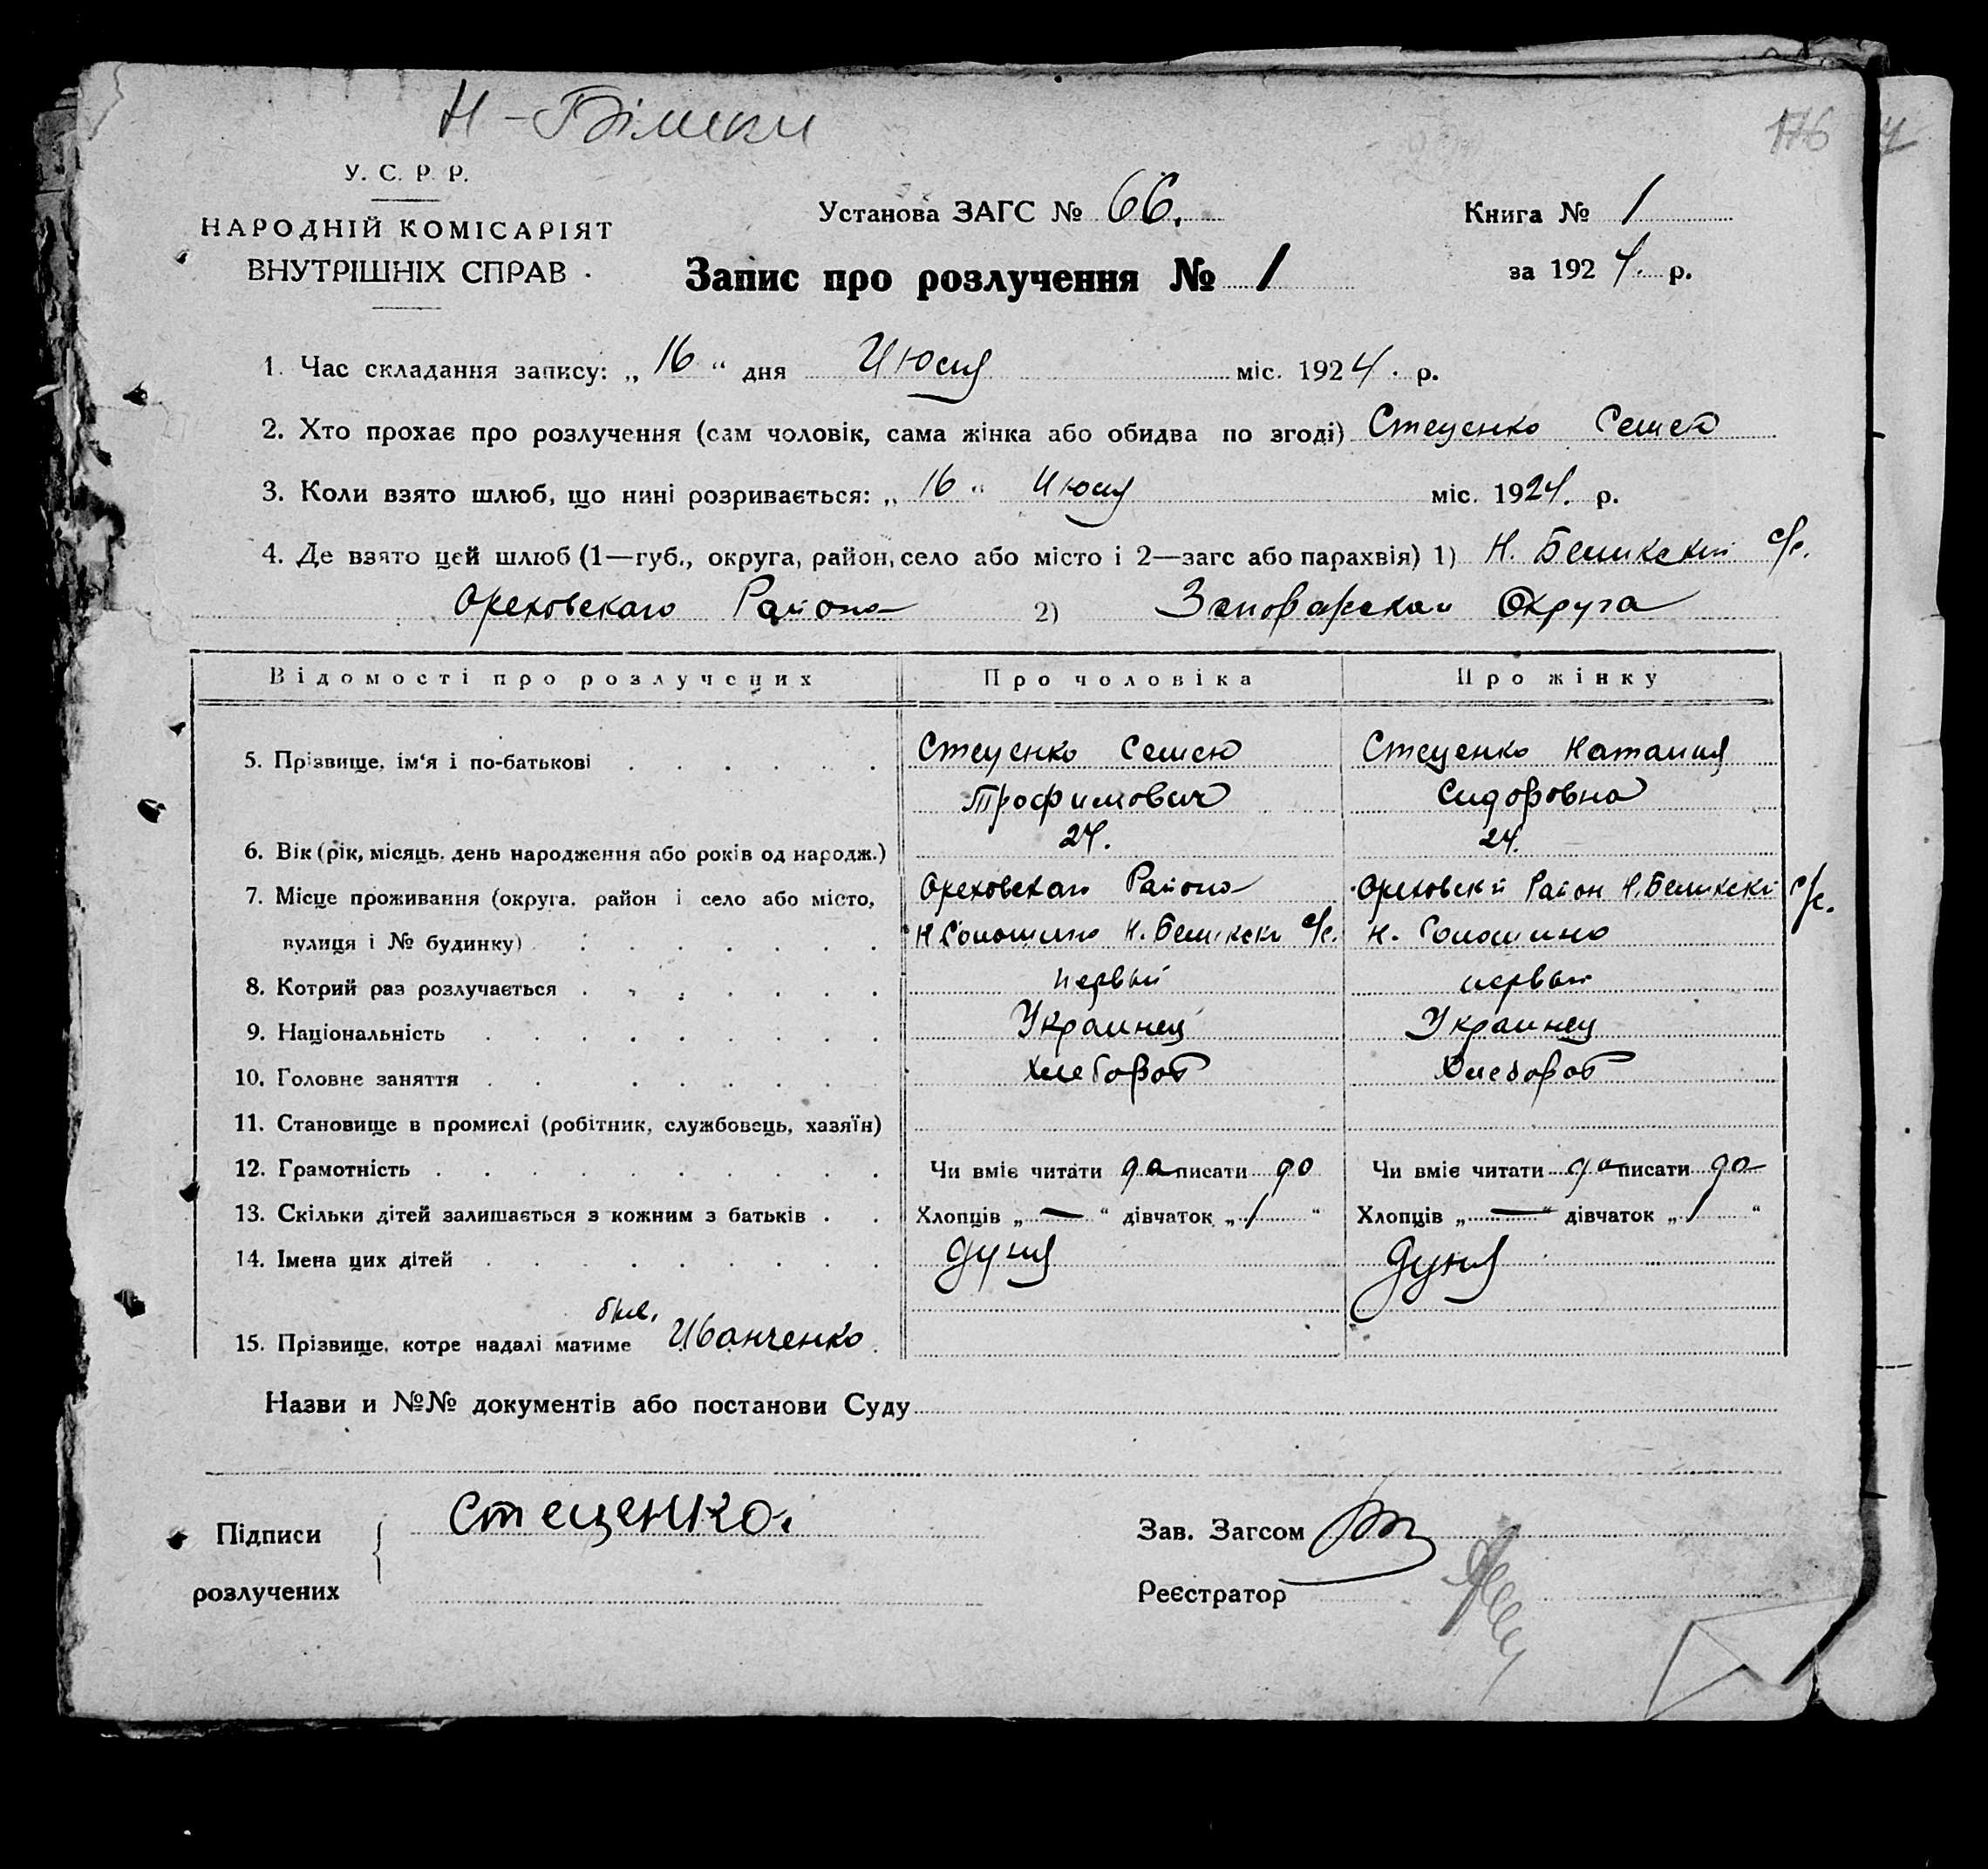 Н-Білики
176
У. С. Р. Р.
НАРОДНІЙ КОМІСАРІЯТ
ВНУТРІШНІХ СПРАВ
Установа ЗАГС № 66.
Книга № 1
за 1924. р.
Запис про розлучення № 1
1. Час складання запису: „ 16 “ дня Июля міс. 1924. р.
2. Хто прохає про розлучення (сам чоловік, сама жінка або обидва по згоді) Стеценко Семен
3. Коли взято шлюб, що нині розривається: „ 16 “ Июля міс. 1924. р.
4. Де взято цей шлюб (1—губ., округа, район, село або місто і 2—загс або парахвія) 1) Н. Беликский с/с.
Ореховскаго Района 2) Запорожской Округа
Відомості про розлучених Про чоловіка Про жінку
5. Прізвище, ім‘я і по-батькові Стеценко Семен Стеценко Наталия
Трофимович Сидоровна
6. Вік (рік, місяць, день народження або років од народж.) 24. 24.
7. Місце проживання (округа, район і село або місто, Ореховскаго Района Ореховский Район Н. Беликский с/с.
вулиця і № будинку) Н. Беликски с/с.
8. Котрий раз розлучається первый первый
9. Національність Украинец Украинец
10. Головне заняття Хлебороб Хлебороб
11. Становище в промислі (робітник, службовець, хазяїн)
12. Грамотність Чи вміє читати да писати да Чи вміє читати да писати да
13. Скільки дітей залишається з кожним з батьків Хлопців „ — “ дівчаток „ 1 “ Хлопців „ — “ дівчаток „ 1 “
14. Імена цих дітей Дуня Дуня
15. Прізвище, котре надалі матиме Иванченко
Назви и №№ документів або постанови Суду
Підписи Стеценко Зав. Загсом
розлучених Реєстратор